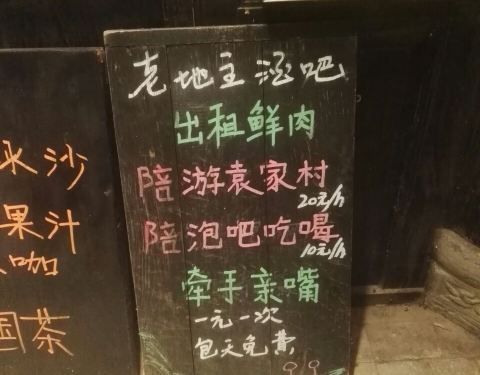 老地主酒吧
出租鲜肉
陪游袁家村
20元/h
陪泡吧吃喝
10元/h
牵手亲嘴
一元一次
包天免费
99
冰沙
果汁
咖
国茶